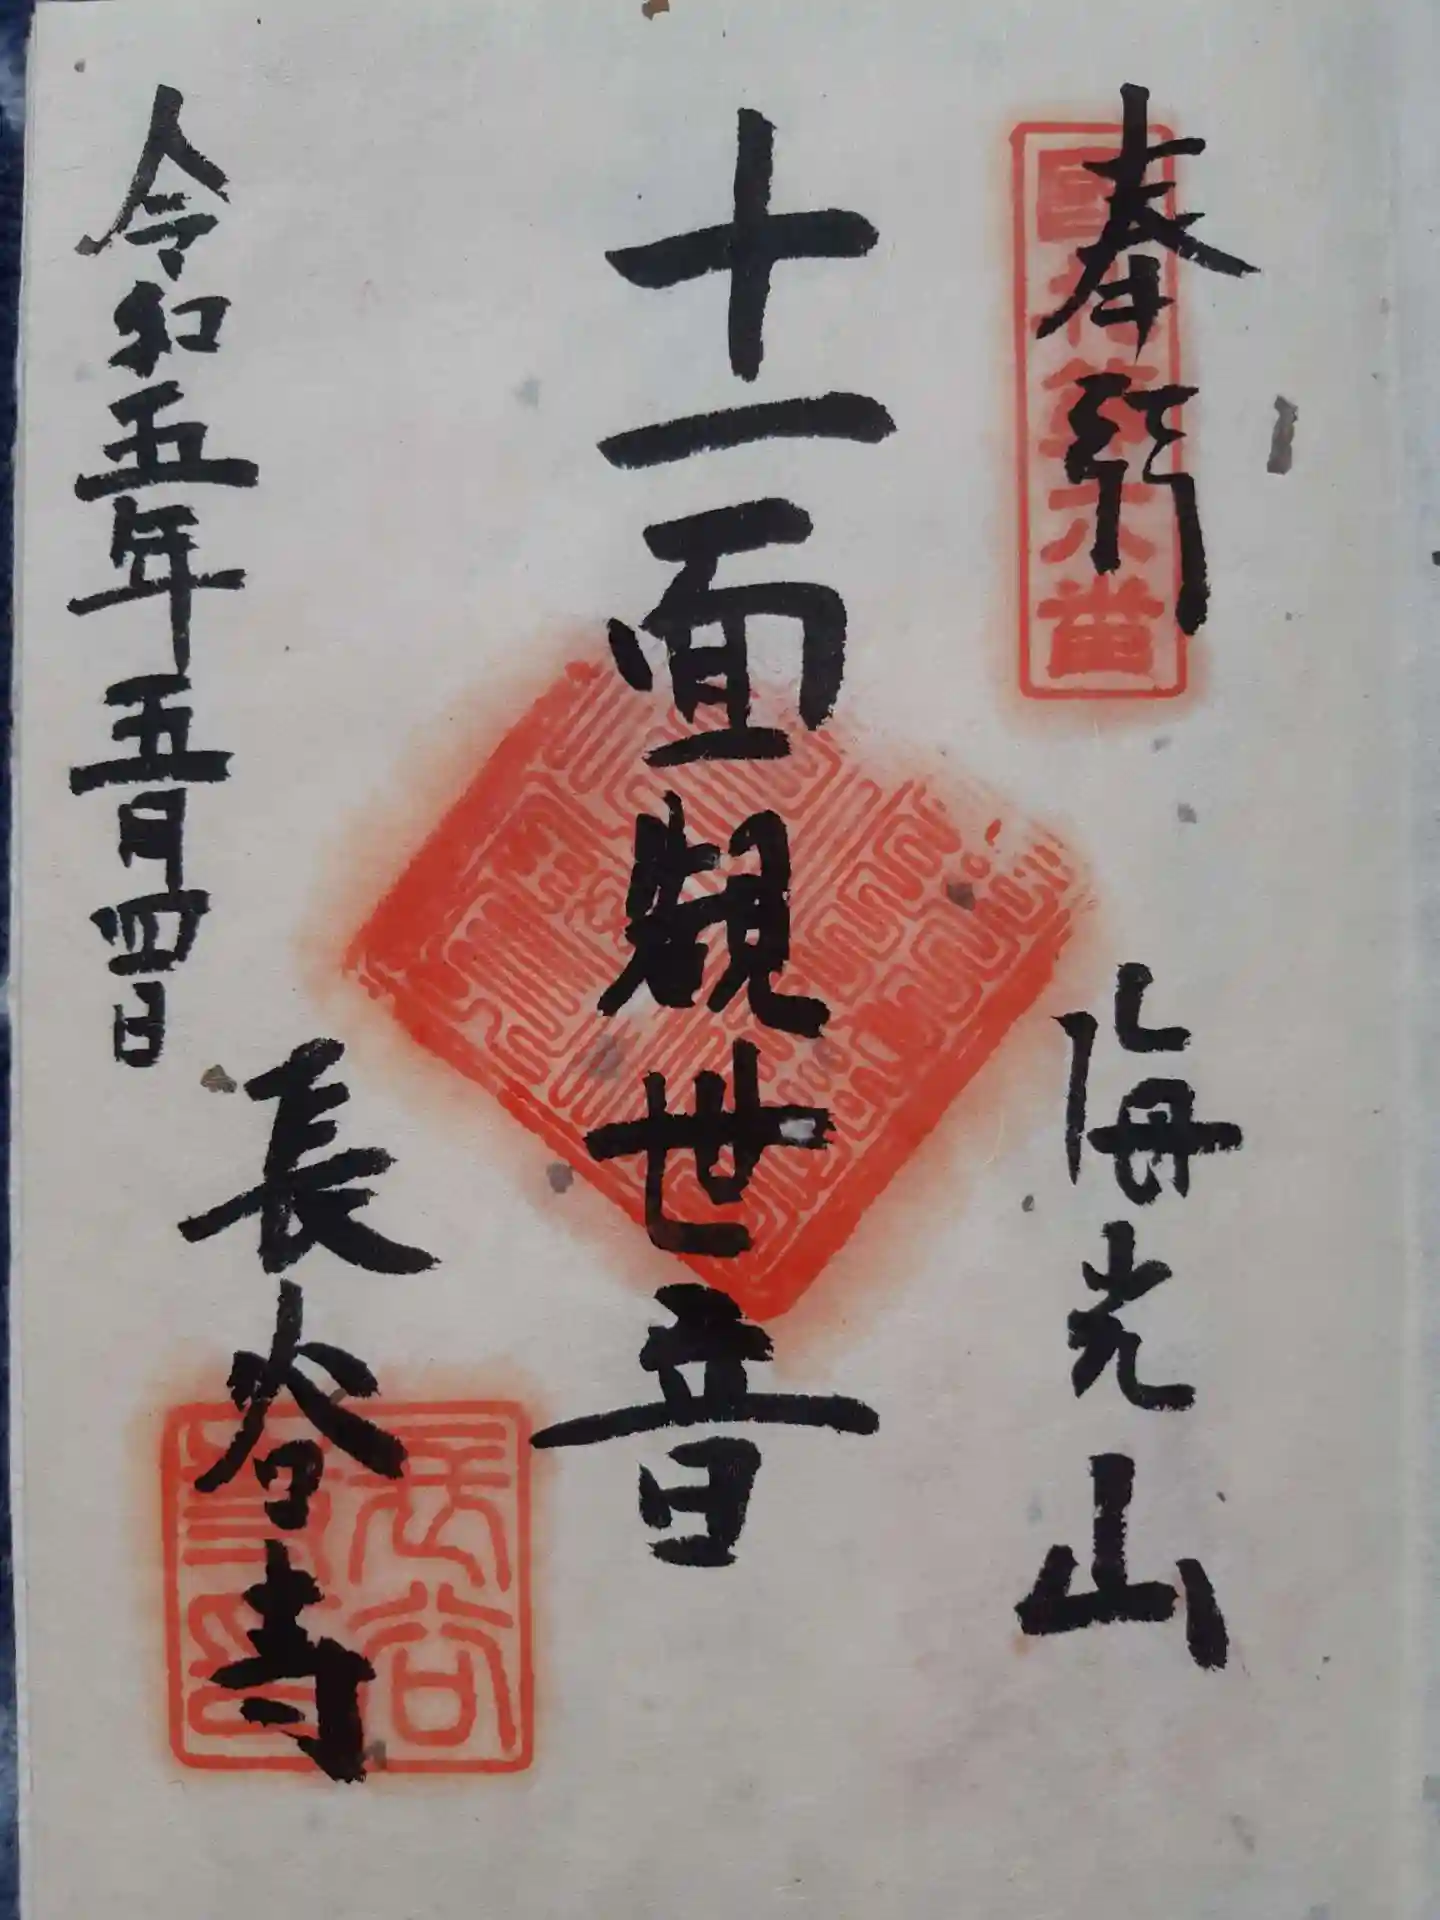 奉拝
海光山
十一面観世音
長谷寺
令和五年五月四日
長谷
寺印